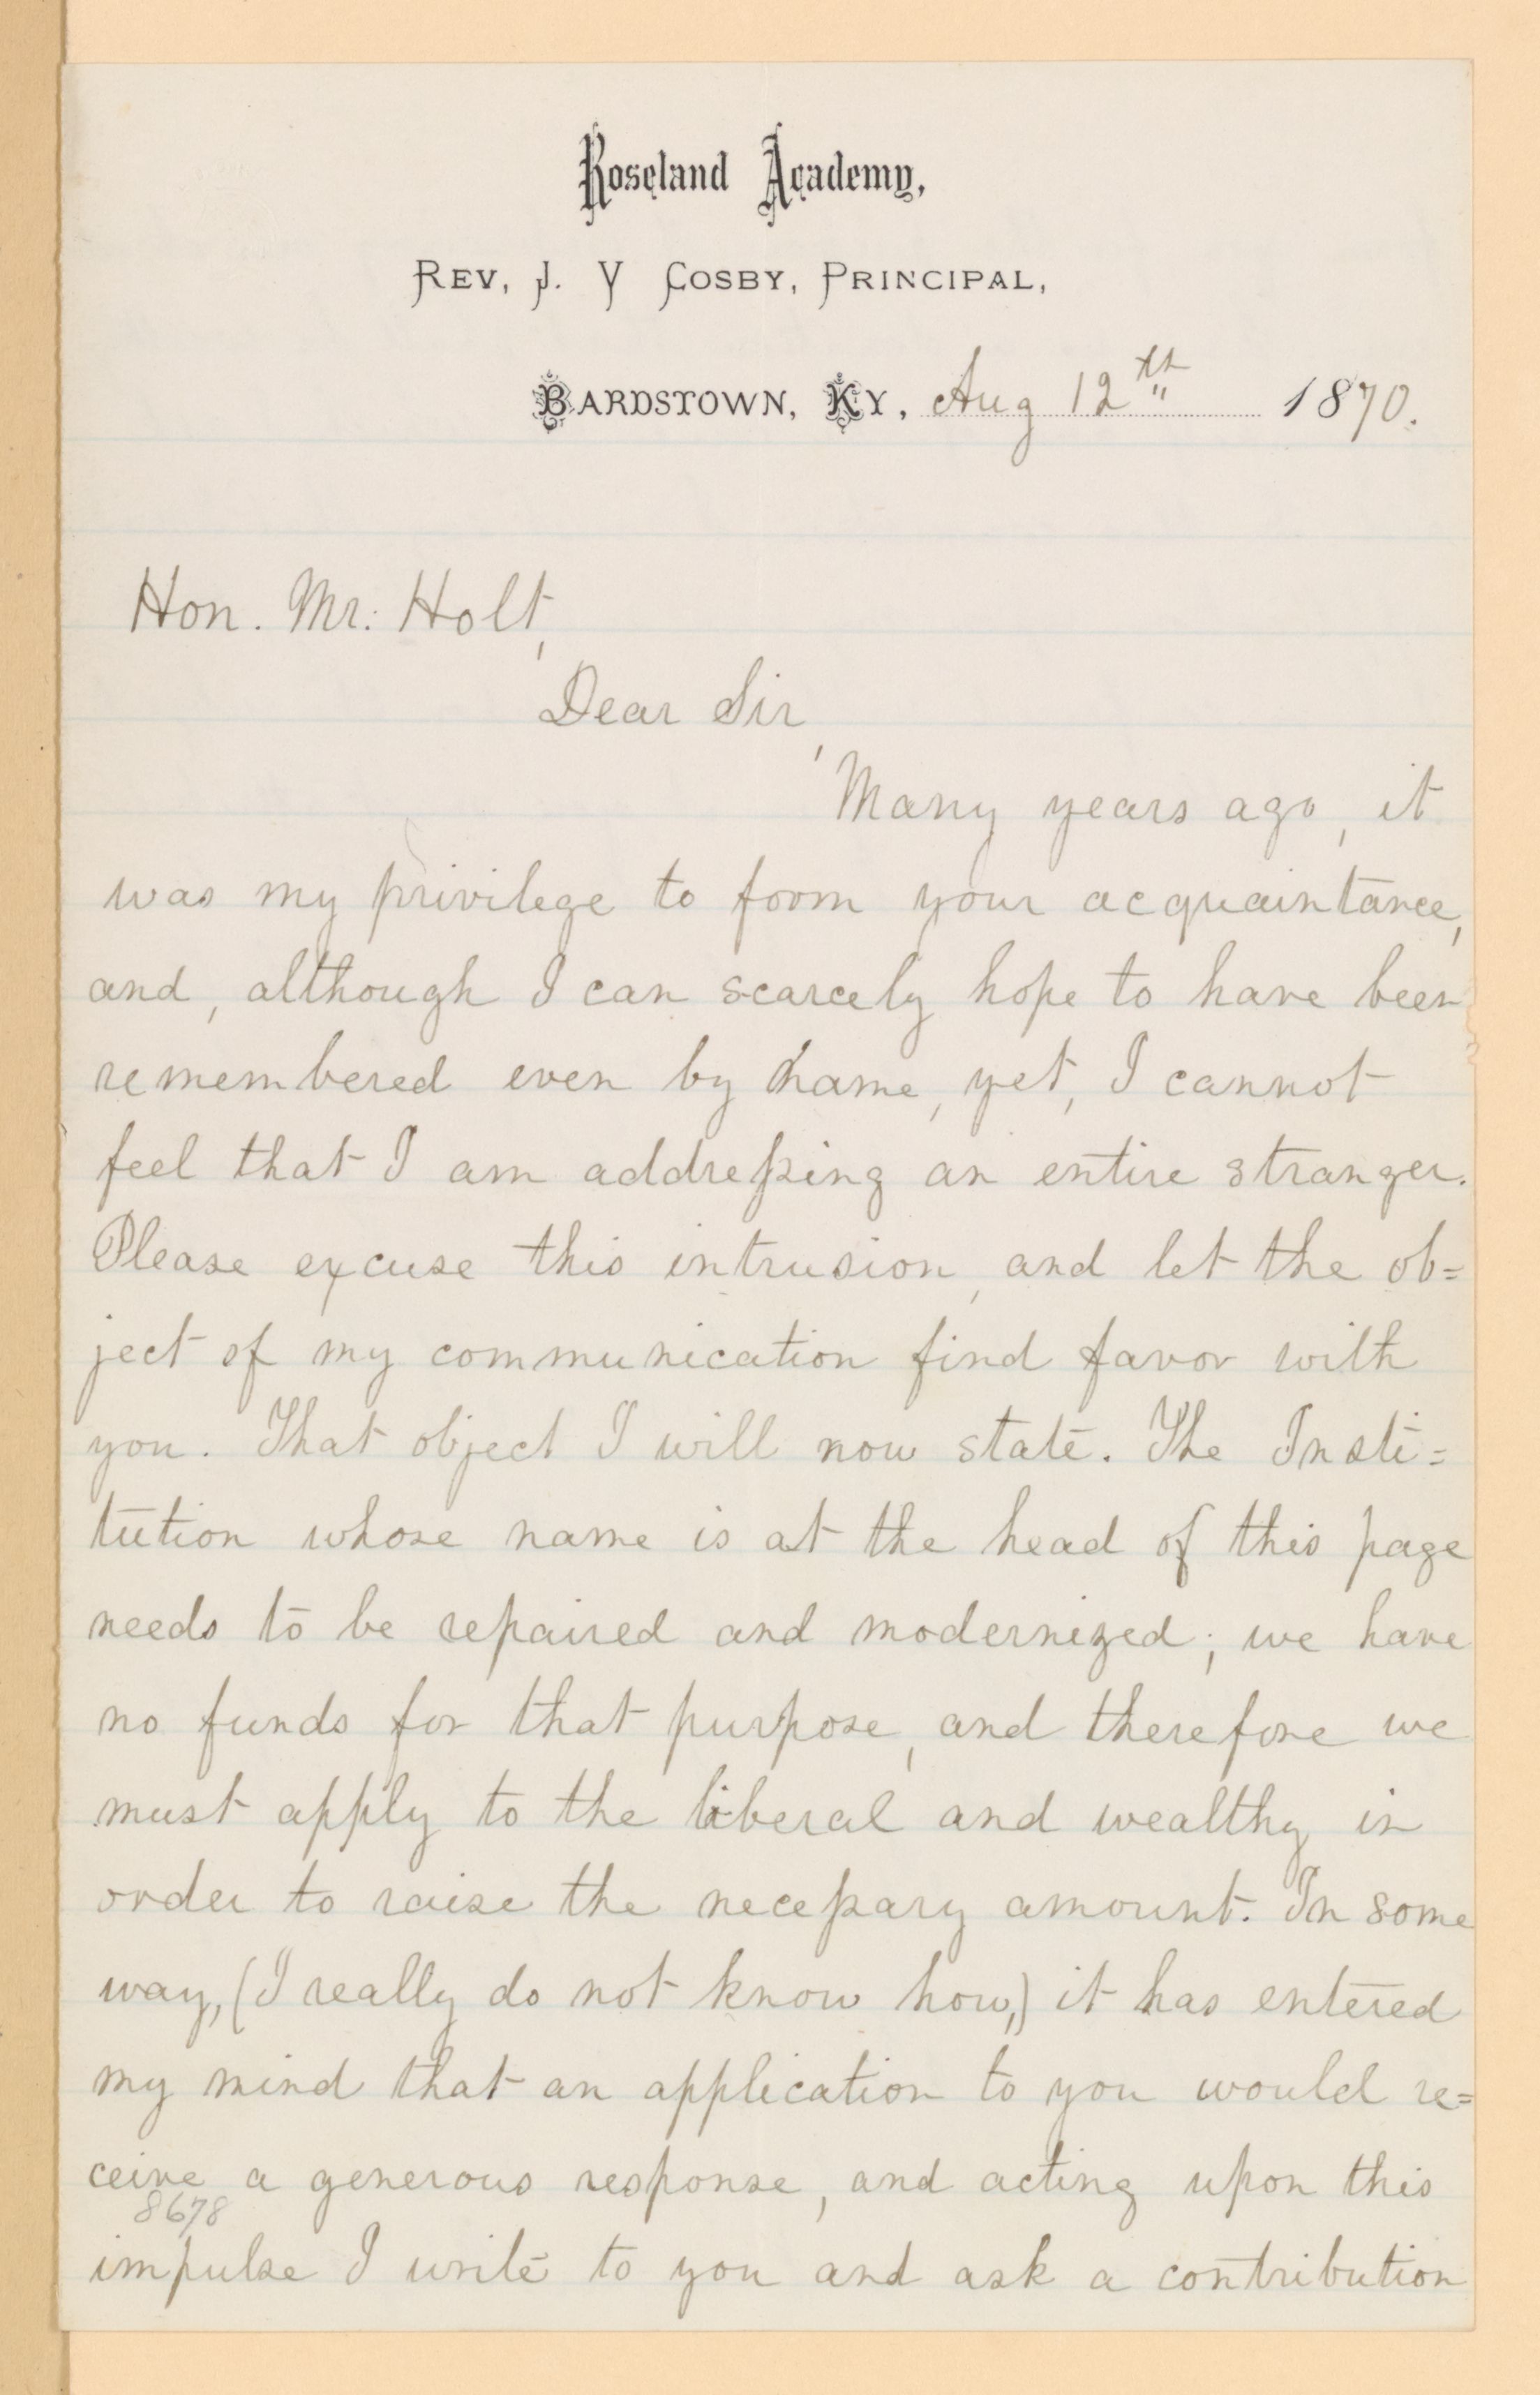 Roseland Academy,
REV, J. V COSBY, PRINCIPAL,
BARDSTOWN, KY, Aug 12th 1870.
Hon. Mr: Holt,
Dear Sir,
Many years ago, it
was my privilege to form your acquaintance,
and, although I can scarcely hope to have been
remembered even by name, yet, I cannot
feel that I am addressing an entire stranger.
Please excuse this intrusion, and let the ob=
ject of my communication find favor with
you. That object I will now state. The Insti=
tution whose name is at the head of this page
needs to be repaired and modernized; we have
no funds for that purpose, and therefore we
must apply to the liberal and wealthy in
order to raise the necessary amount. In some
way, (I really do not know how,) it has entered
my mind that an application to you would re=
ceive a generous response, and acting upon this
8678
impulse I write to you and ask a contribution